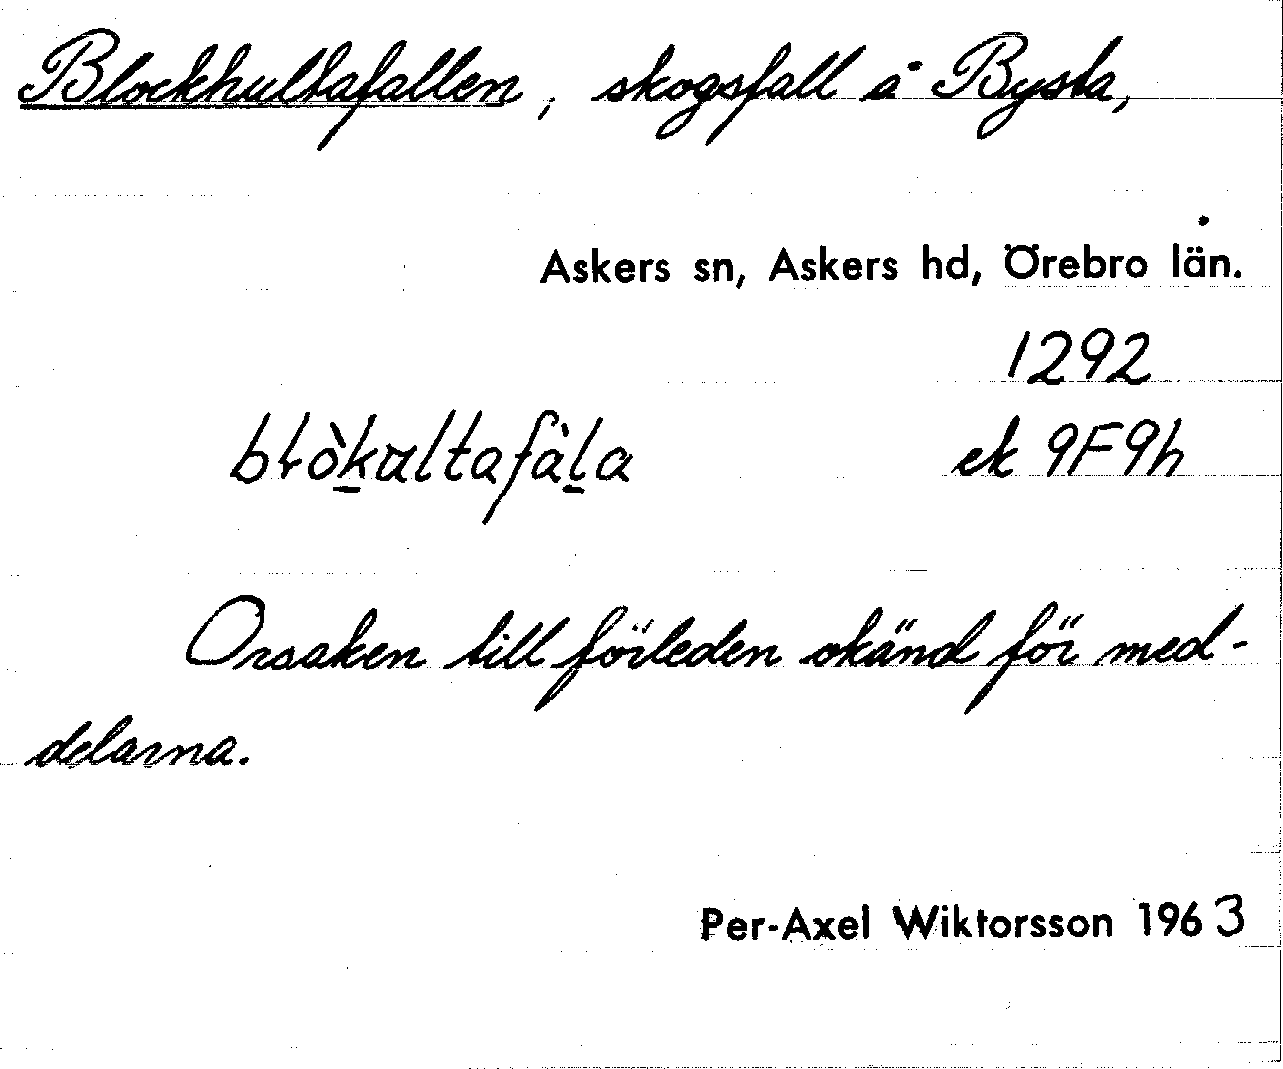 Blockhultafallen, skogsfall å Bysta,
Askers sn, Askers hd, Örebro län.
1292
blòkultafàla ek 9F9h
Orsaken till förleden okänd för med-
delarna.
Per-Axel Wiktorsson 1963